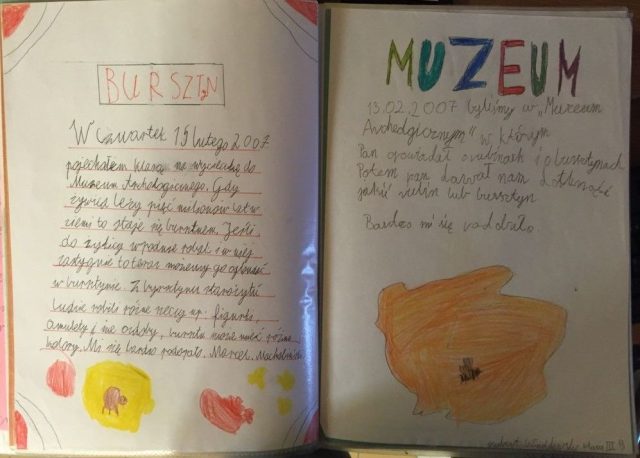 BURSZTN
W Czwartek 15 lutego 2007
pojechałem klasą na wycieczkę do
Muzeum Archologicznego. Gdy
żywica leży pięć milionów lat w
ziemi to staje się bursztnem. Jeśli
do żywicy wpadnie robal i w niej
zastygnie to teraz możemy go oglondać
w bursztynie. Z bursztynu starożytni
ludzie robili różne rzeczy np: figurki,
amulety i ozdoby, bursztn może mieć różne
kolory. Mi się bardzo podobało. Marcel
MUZEUM
13.02.2007 byliśmy w „Muzeum
Archeologicznym" w którym
Pan opowiadał o i o bursztynach
Potem pan dawał nam dotknąć
jakiś lub bursztyn
Bardzo mi się podobało.
klasa III B